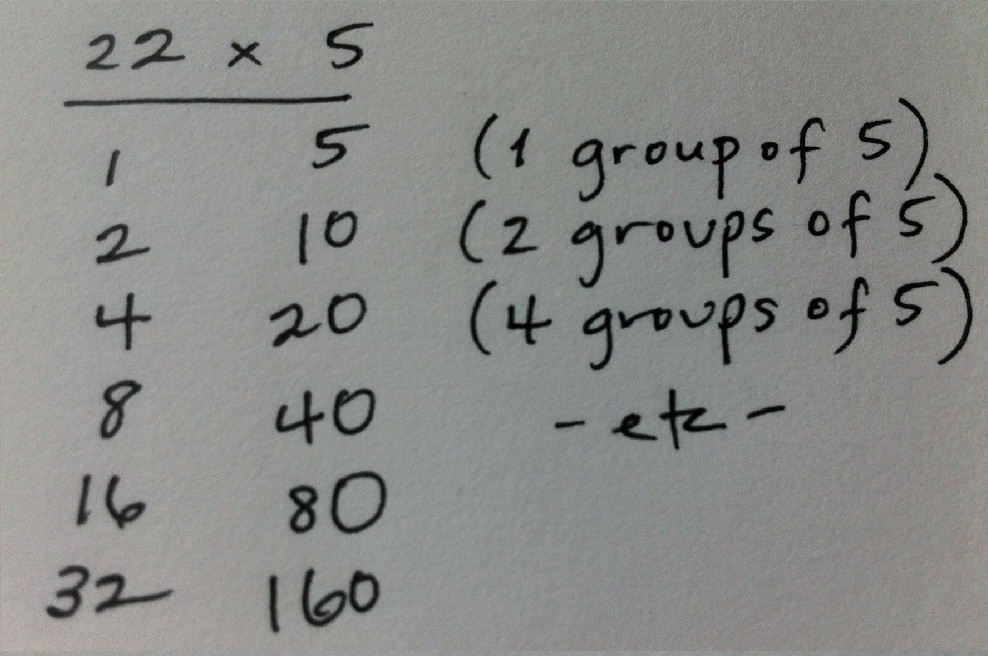 22 x 5
1 5 (1 group of 5)
2 10 (2 groups of 5)
4 20 (4 groups of 5)
8 40 - etc -
16 80
32 160